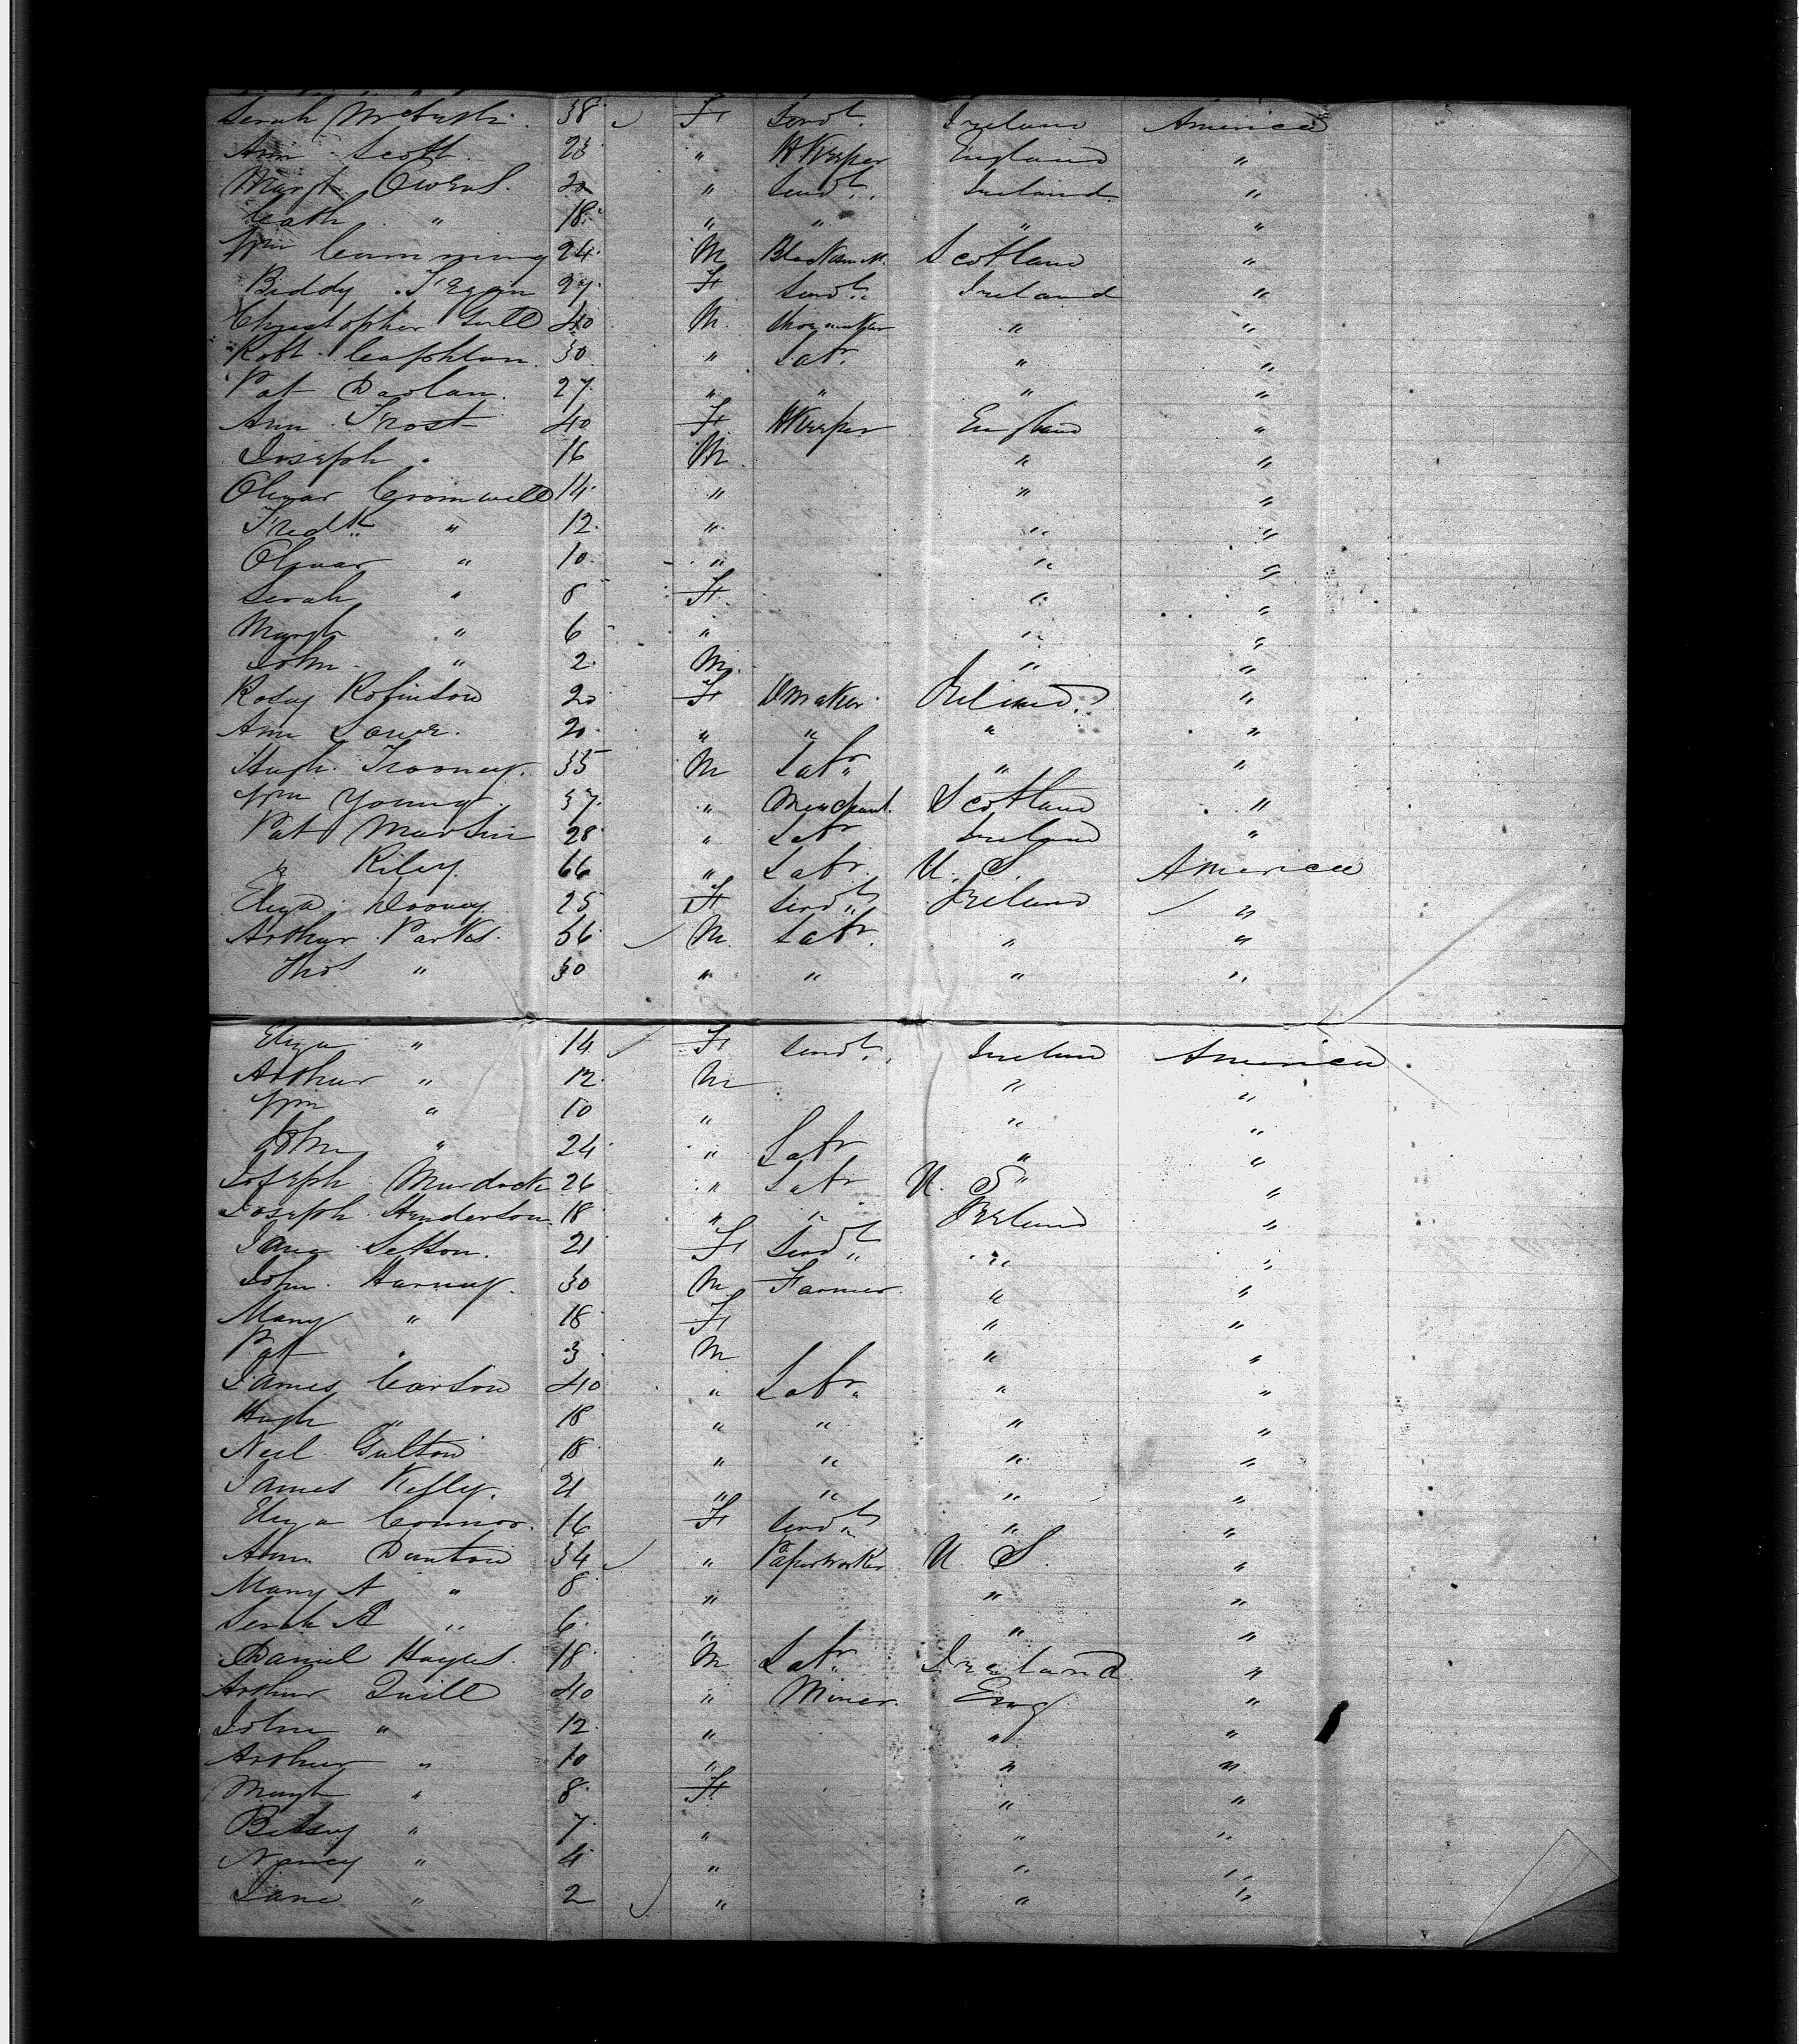 Serah 38 F Servt. Ireland America
Ann Scott 23 " H Keeper England "
Margt. Owens 20 " Servt. Ireland "
Cath " 18 " " " "
Wm Cumming 24 M Blacksmith Scotland "
Biddy Fegan 27 F Servt. Ireland "
Christopher 40 M Shoemaker " "
Robt. 30 " Labr. " "
Pat Darlan 27 " " " "
Ann Frost 40 F H Keeper England "
Joseph " 16 M " "
Olivar Cromwell 14 " " "
Fredk. " 12 " " "
Olivar " 10 " " "
Serah " 8 F " "
Margt " 6 " " "
John " 2 M " "
Rosey Robinson 20 F D Maker Ireland "
Ann 20 " " " "
Hugh 35 M Labr. " "
Wm Young 37 " Merchant Scotland "
Pat Martin 28 " Labr Ireland "
" Riley 66 " Labr. U. S. America
Eliza Dooney 25 F Servt. Ireland "
Arthur Parks 56 M Labr. " "
Thos " 30 " " " "
Eliza " 14 F Servt. Ireland America
Arthur " 12 M " "
Wm " 10 " " "
John " 24 " Labr " "
Joseph Murdock 26 " Labr U. S "
Joseph Henderson 18 " " Ireland "
Jane 21 F Servt. " "
John Harvey 30 M Farmer " "
Mary " 18 F " "
Pat " 3 M " "
James Carson 40 " Labr. " "
Hugh " 18 " " " "
Neil 18 " " " "
James Kelly. 21 " " " "
Eliza Connor 16 F Servt. " "
Ann Danton 34 " Paperworker U. S. "
Mary A " 8 " " "
Serah A " 6 " " "
Daniel Hayes 18 M Labr. Ireland "
Arthur Quill 40 " Miner Eng "
John " 12 " " "
Arthur " 10 " " "
Margt " 8 F " "
Betsey " 7 " " "
Nancy " 4 " " "
Jane " 2 " " "